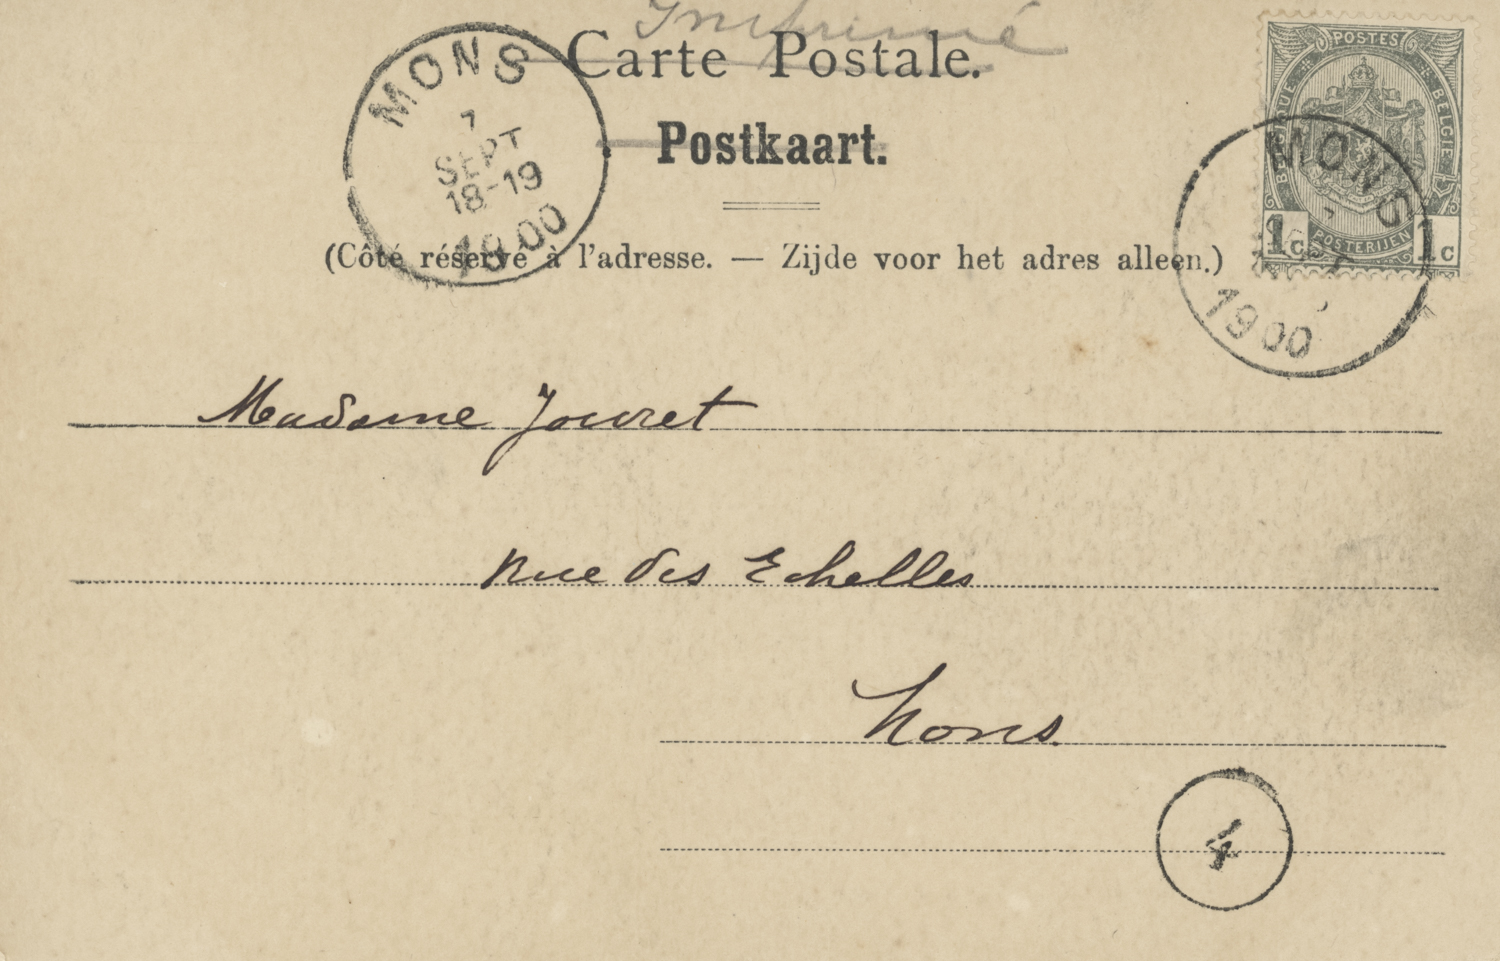 Imprimé
Carte Postale.
Postkaart.
(Côté réservé à l'adresse. — Zijde voor het adres alleen.)
MONS
7
SEPT
18-19
1900
POSTES
BELGIQUE
BELGIE
POSTERIJEN
1c 1c
MONS
7
SEPT
1900
Madame Jouret
Rue des Echelles
Mons
4